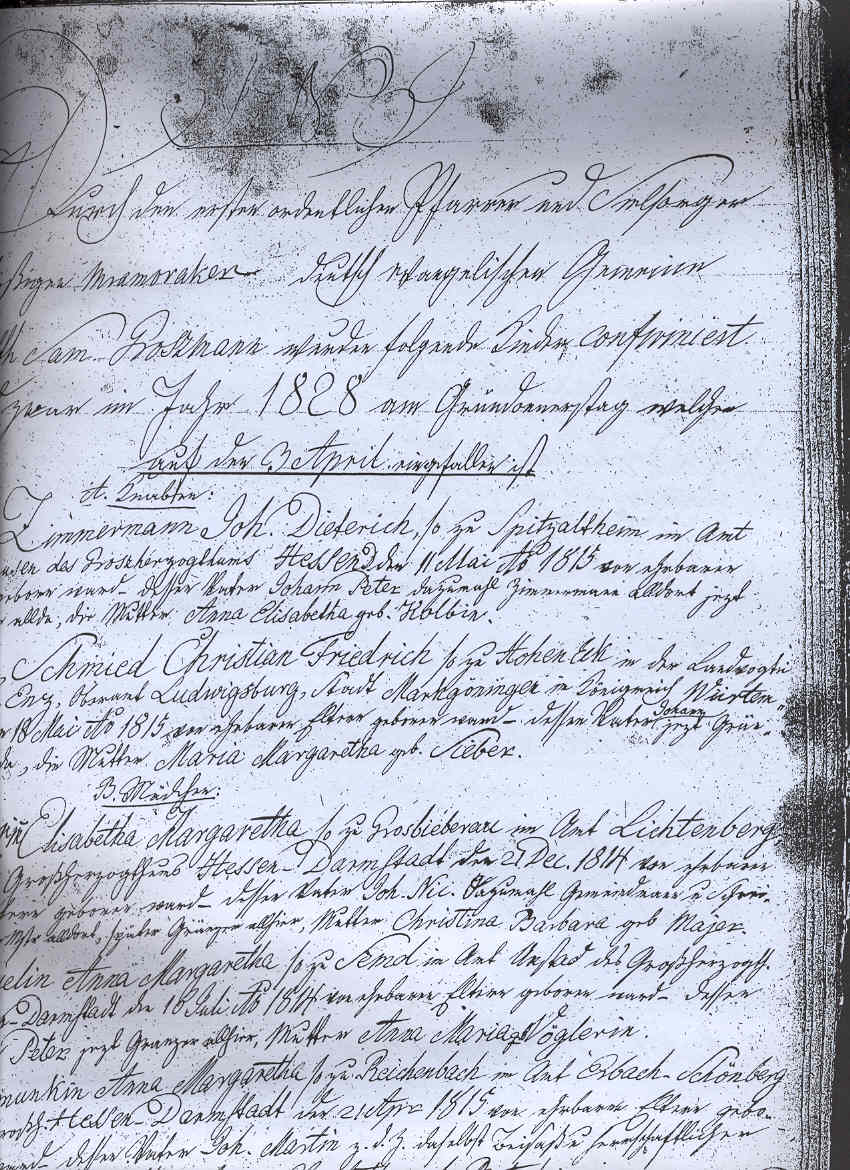 N B
Durch den ersten ordentlichen Pfarrer und Seelsorger
Mramoraker deutsch evangelischen Gemeinde
Sam. wurden folgende Kinder confirmiert
zwar im Jahr 1828 am Gründonnerstag welcher
auf den 3 April eingefallen ist
A. Knaben:
Zimmermann Joh. Dieterich, so zu Spitzaltheim im Amt
des Grosherzogthums Hessen den 11 Mai Ao 1815 von ehrbaren
geboren ward – dessen Vater Johann Peter dazumahl Zimmermann alldort jezt
allda, die Mutter Anna Elisabetha geb. Kolbin.
Schmied Christian Friedrich so zu Hohen Eck in der Landvogtei
Enz, Oberamt Ludwigsburg, Stadt Markgöningen im Königreich Würtem-
18 Mai Ao 1815 von ehrbaren Eltern geboren ward – dessen Vater Johann jezt Grän-
die Mutter Maria Margaretha geb. Sieber.
B. Mädchen:
Elisabetha Margaretha so zu Grosbieberau im Amt Lichtenberg
Grosherzogthums Hessen-Darmstadt den 21 Dec. 1814 von ehrbaren
geboren ward – dessen Vater Joh. Nic. dazumahl
alldort, später Gränzer allhier, Mutter Christina Barbara geb Majer.
Anna Margaretha so zu Semd im Amt Umstad des Grosherzogth.
Darmstadt den 18 Juli Ao 1814 von ehrbaren Eltern geboren ward – dessen
Peter jezt Granzer allhier, Mutter Anna Maria Vöglerin
Anna Margaretha so zu Reichenbach im Amt Erbach-Schönberg
Hessen-Darmstadt den 21 Apr 1815 von ehrbaren Eltern gebo-
ward – dessen Vater Joh. Martin z. d. Z. daselbst herrschaftlicher